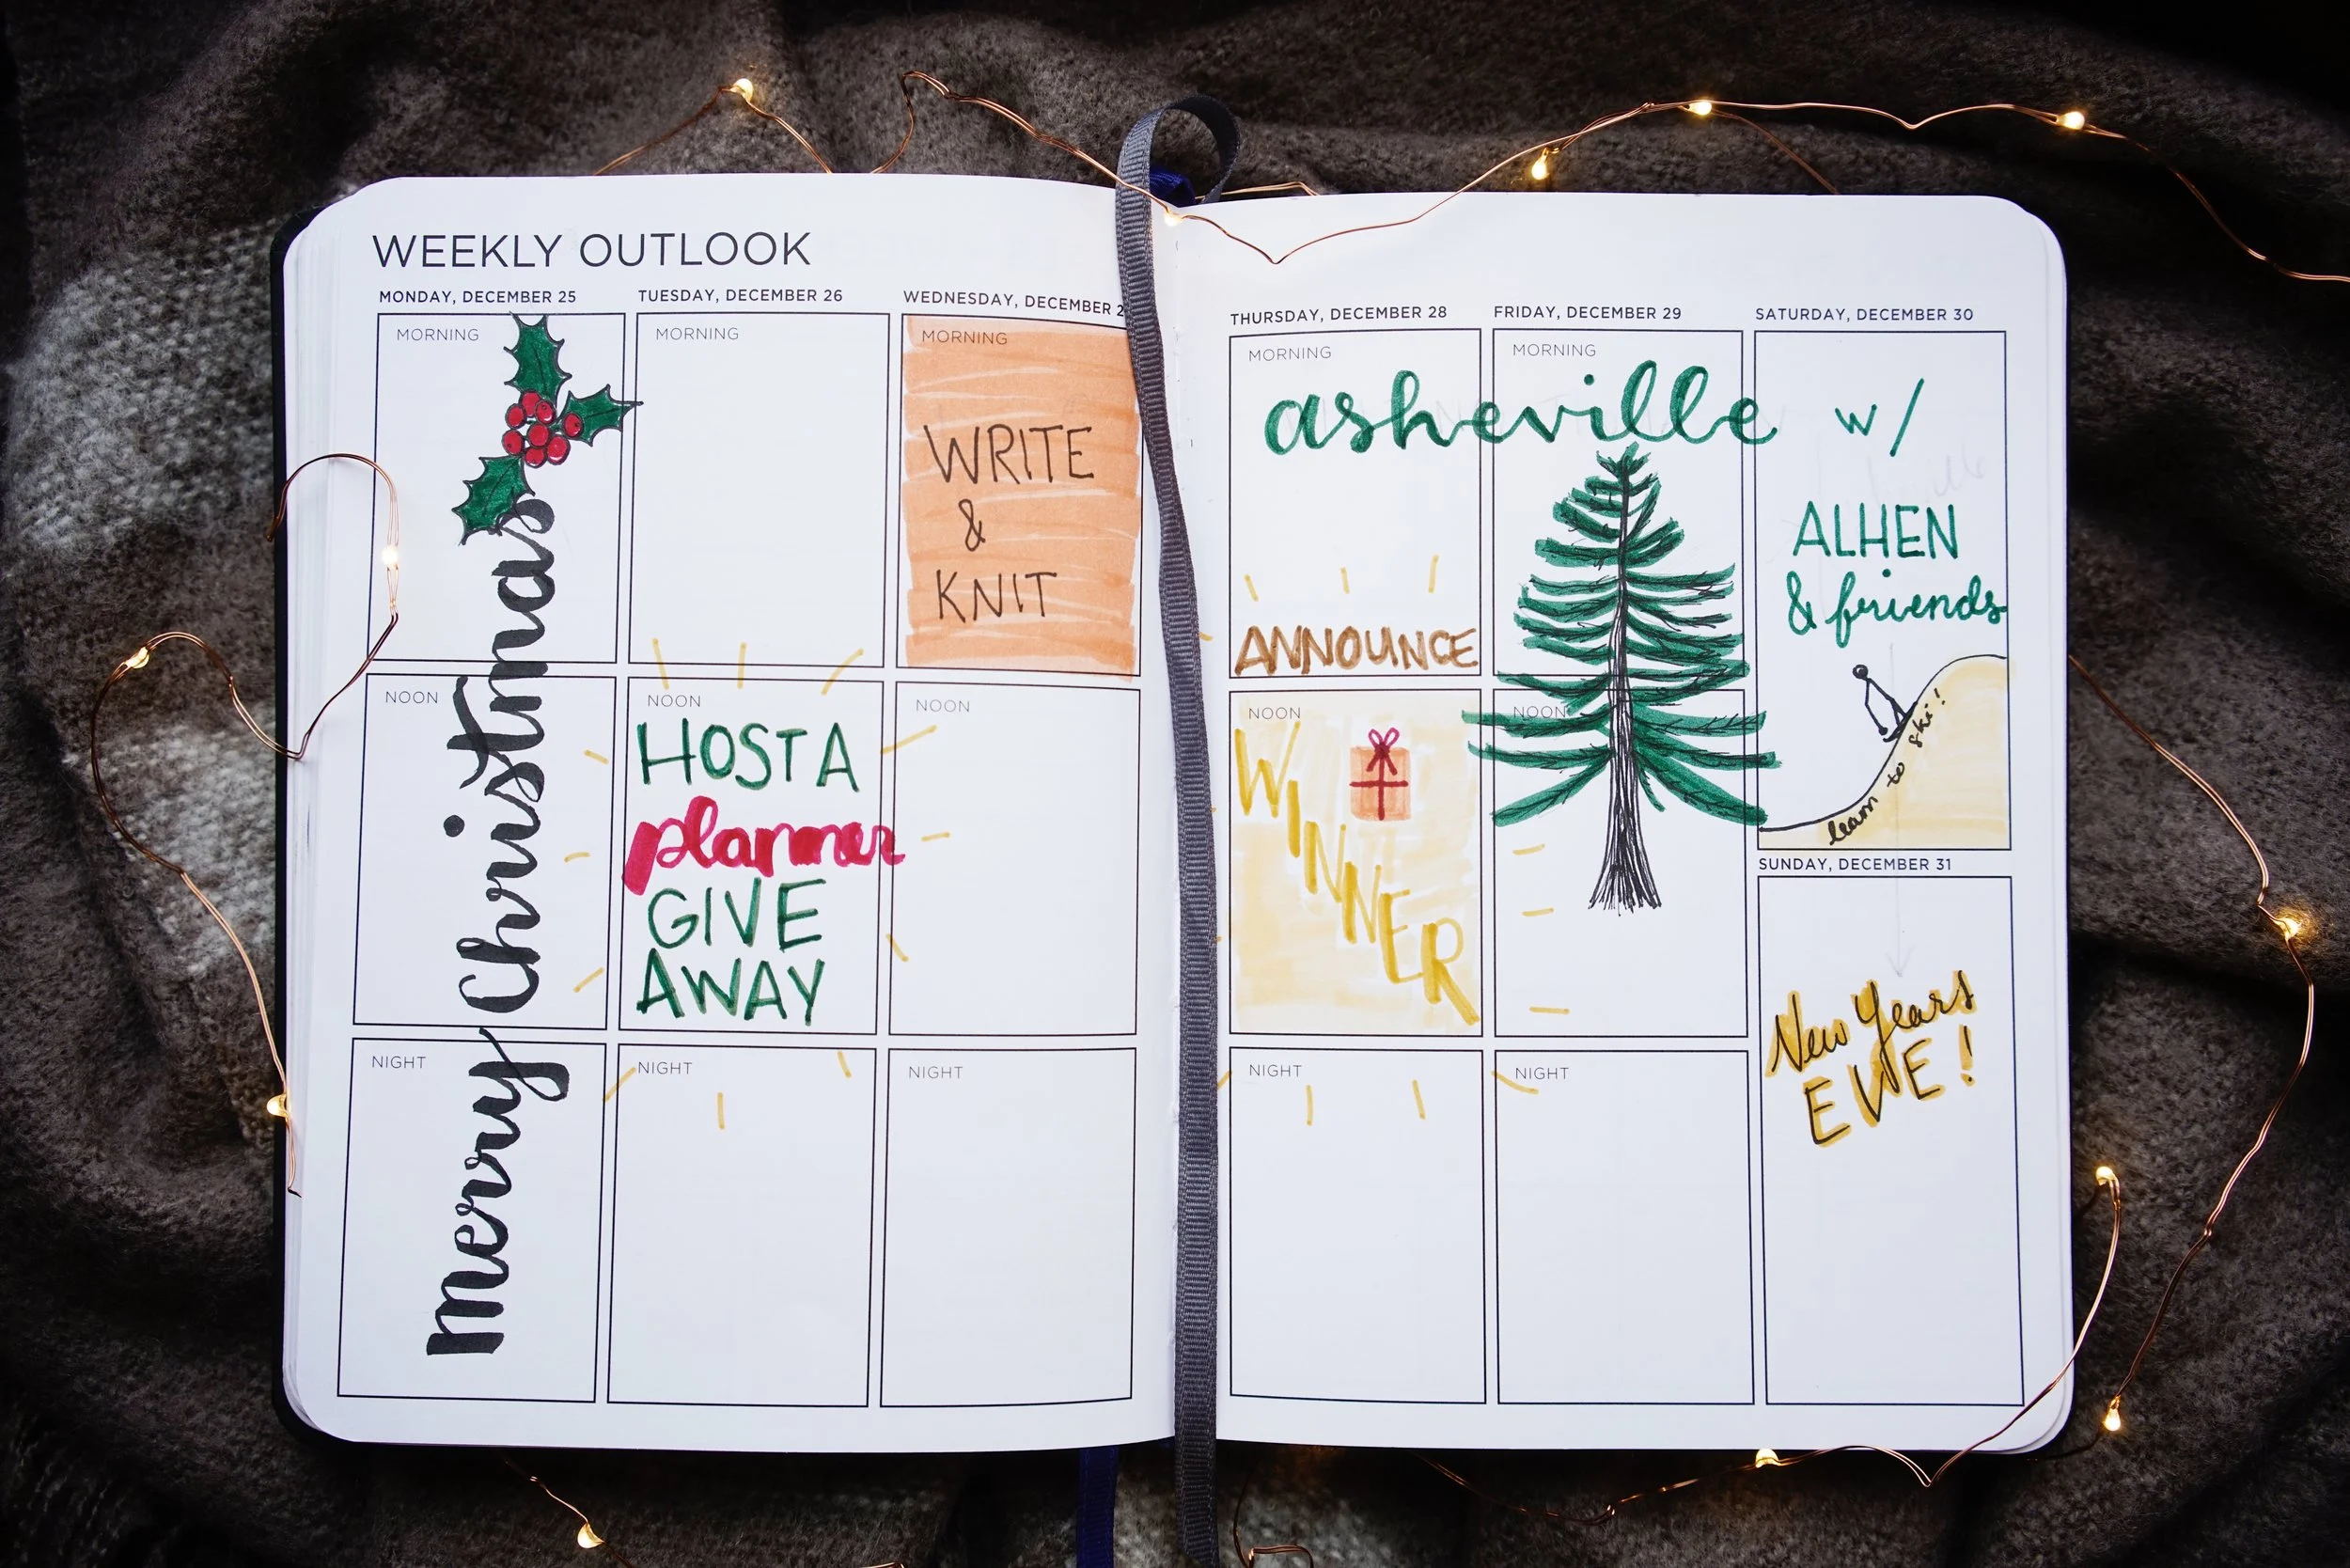 WEEKLY OUTLOOK
MONDAY, DECEMBER 25
MORNING
NOON
NIGHT
Merry Christmas
TUESDAY, DECEMBER 26
MORNING
NOON
HOST A
planner
GIVE
AWAY
NIGHT
WEDNESDAY, DECEMBER 2
MORNING
WRITE
&
KNIT
NOON
NIGHT
THURSDAY, DECEMBER 28
FRIDAY, DECEMBER 29
SATURDAY, DECEMBER 30
MORNING
MORNING
asheville w/
ALHEN
& friends
ANNOUNCE
NOON
WINNER
NOON
learn to ski!
NIGHT
NIGHT
SUNDAY, DECEMBER 31
New Years
EVE!